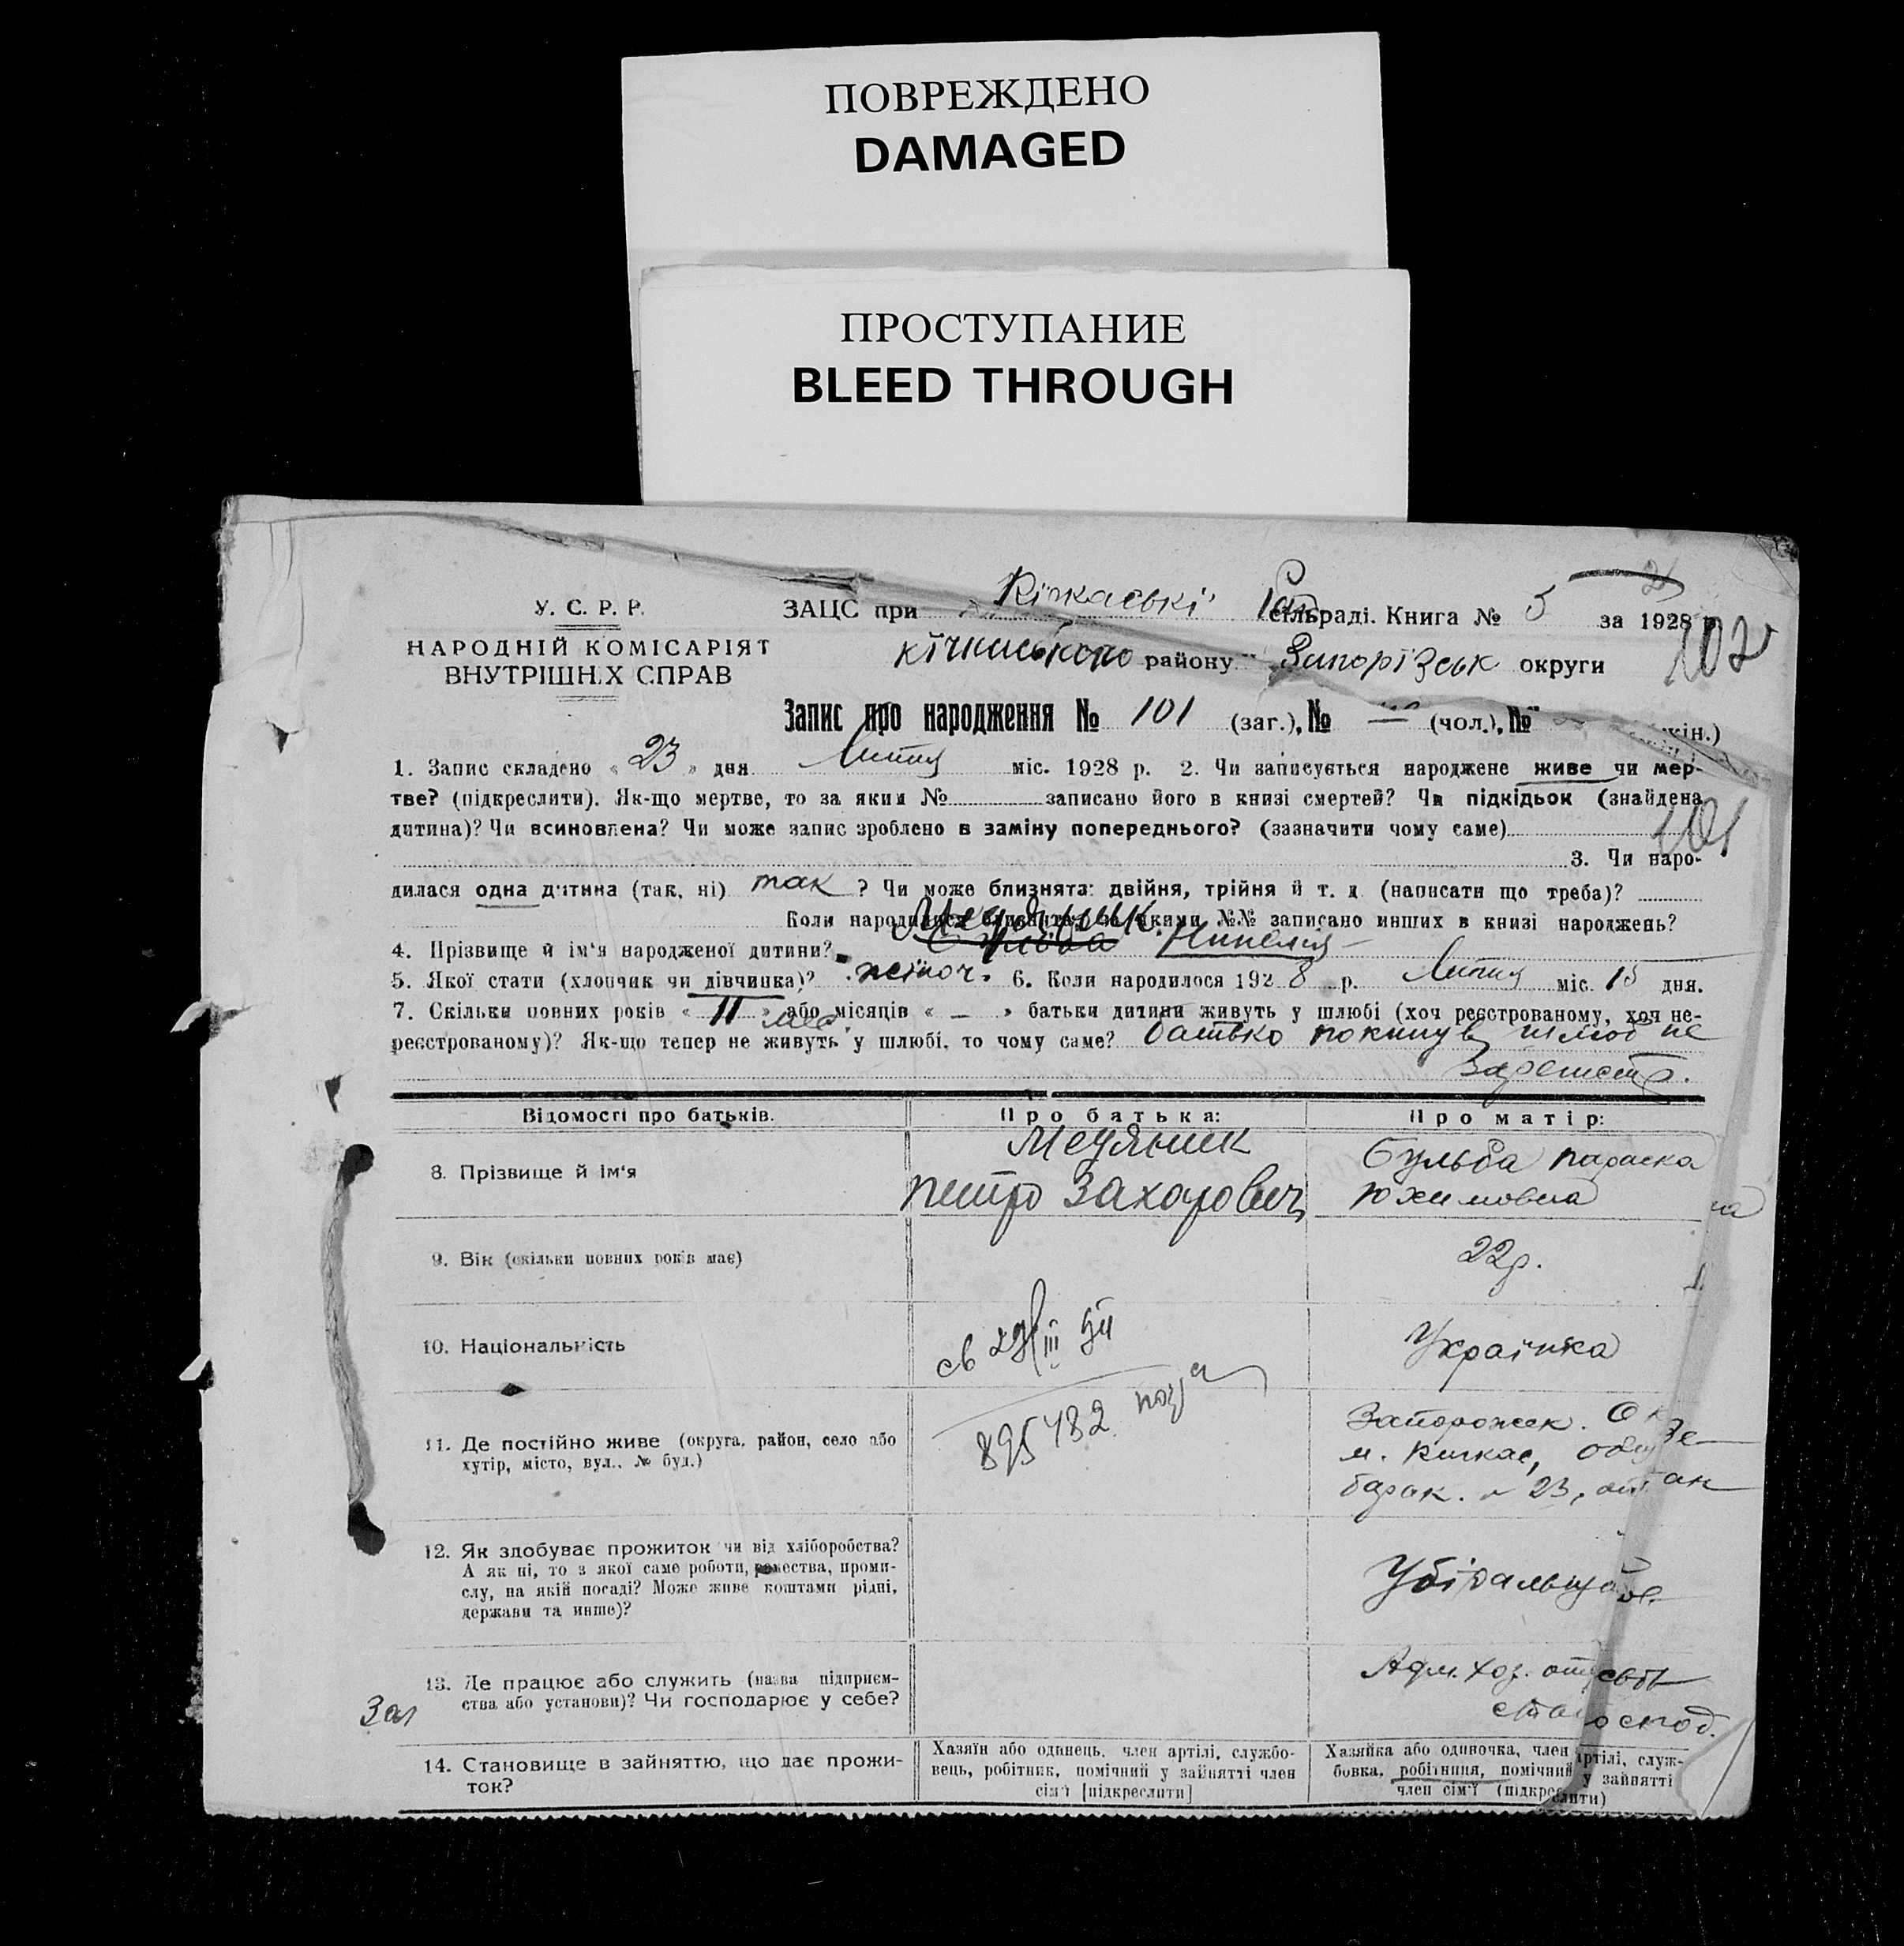 ПОВРЕЖДЕНО
DAMAGED
ПРОСТУПАНИЕ
BLEED THROUGH
У. С. Р. Р.
НАРОДНІЙ КОМІСАРІЯТ
ВНУТРІШНІХ СПРАВ
ЗАЦС при Кічкаські сільраді. Книга № 5 за 1928 р.
кічкаського району Запорізськ округи
102
Запис про народження № 101 (заг.), № — (чол.), № жін.)
1. Запис складено « 23 » дня Липня міс. 1928 р. 2. Чи записується народжене живе чи мер-
тве? (підкреслити). Як-що мертве, то за яким № записано його в книзі смертей? Чи підкідьок (знайдена
дитина)? Чи всиновлена? Чи може запис зроблено в заміну попереднього? (зазначити чому саме)
101
3. Чи наро-
дилася одна дитина (так, ні) так ? Чи може близнята: двійня, трійня й т. д (написати що треба)?
Коли народилися близнята, за якими №№ записано инших в книзі народжень?
4. Прізвище й ім'я народженої дитини? Медяник Бульба Нинелія
5. Якої стати (хлопчик чи дівчинка)? жіноч. 6. Коли народилося 1928 р. Липня міс. 15 дня.
7. Скільки повних років « 11 » або місяців « — » батьки дитини живуть у шлюбі (хоч реєстрованому, хоч не-
міс.
реєстрованому)? Як-що тепер не живуть у шлюбі, то чому саме? батько покинув шлюб не
зарегистр.
Відомості про батьків.
Про батька:
Про матір:
8. Прізвище й ім'я
Медяник
Петро Захарович
Бульба Параска
Юхимовна
9. Вік (скільки повних років має)
22 р.
10. Національність
св 29/III 54
895482
Українка
11. Де постійно живе (округа, район, село або
хутір, місто, вул., № буд.)
Запорожск. Ок
м. Кичкас,
барак. № 23,
12. Як здобуває прожиток чи від хліборобства?
А як ні, то з якої саме роботи, ремества, проми-
слу, на якій посаді? Може живе коштами рідні,
держави та инше)?
13. Де працює або служить (назва підприєм-
ства або установи)? Чи господарює у себе?
Адм. хоз.
Зап
14. Становище в зайняттю, що дає прожи-
ток?
Хазяїн або одинець, член артілі, службо-
вець, робітник, помічний у зайнятті член
сім'ї [підкреслити]
Хазяйка або одиночка, член артілі, служ-
бовка, робітниця, помічний у зайнятті
член сім'ї (підкреслити)